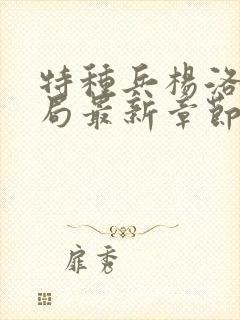 特種兵楊洛
局最新章節
扉秀